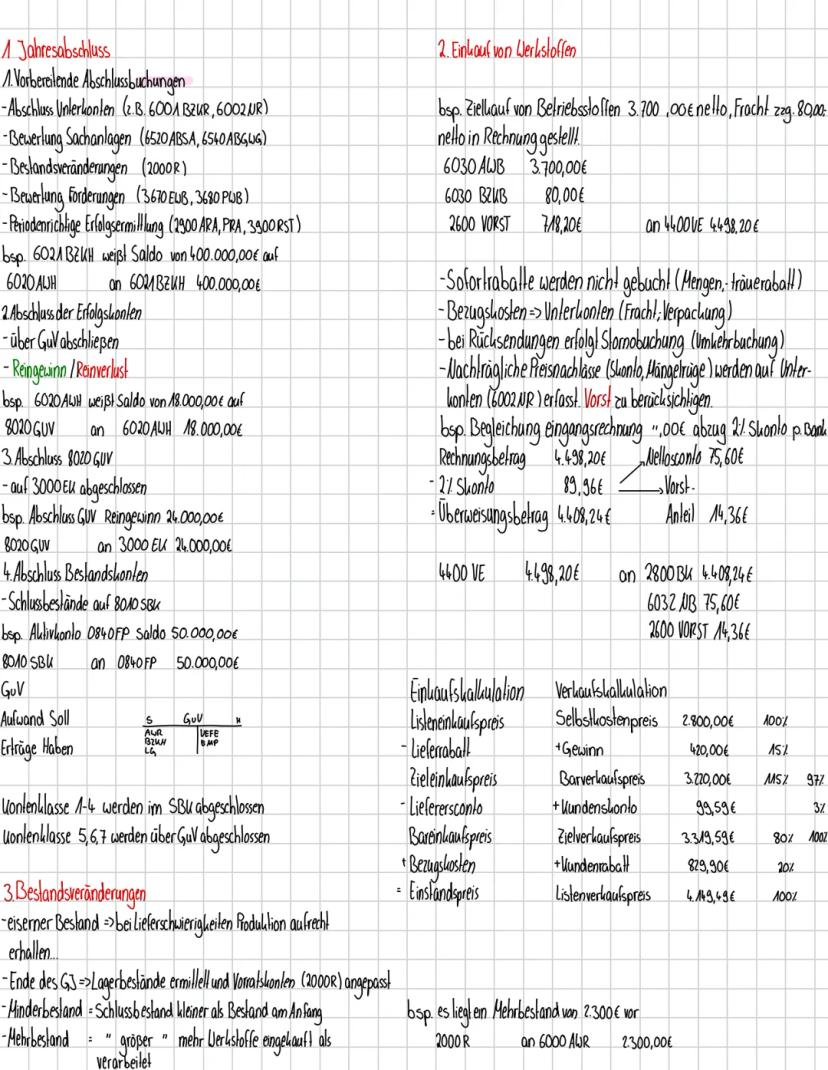 1 Jahresabschluss
1. Vorbereitende Abschlussbuchungen
-Abschluss Unterkonten (z.B. 6001 BZKR, 6002 NR)
-Bewertung Sachanlagen (6520 ABSA, 6540 ABGWG)
-Bestandsveränderungen (2000 R)
-Bewertung Forderungen (3670 EWB, 3680 PWB)
-Periodenrichtige Erfolgsermittlung (2900 ARA, PRA, 3900 RST)
bsp. 6021 BZKH weißt Saldo von 400.000,00€ auf
6020 AWH an 6021 BZKH 400.000,00€
2. Abschluss der Erfolgskonten
-über GuV abschließen
- Reingewinn / Reinverlust
bsp. 6020 AWH weißt Saldo von 18.000,00€ auf
8020 GUV an 6020 AWH 18.000,00€
3. Abschluss 8020 GUV
-auf 3000 EK abgeschlossen
bsp. Abschluss GUV Reingewinn 24.000,00€
8020 GUV an 3000 EK 24.000,00€
4. Abschluss Bestandskonten
-Schlussbestände auf 8010 SBK
bsp. Aktivkonto 0840 FP Saldo 50.000,00€
8010 SBK an 0840 FP 50.000,00€
GuV
Aufwand Soll
Erträge Haben
S GuV H
AWR UEFE
BZKH BMP
LG
Kontenklasse 1-4 werden im SBK abgeschlossen
Kontenklasse 5,6,7 werden über GuV abgeschlossen
3. Bestandsveränderungen
-eiserner Bestand => bei Lieferschwierigkeiten Produktion aufrecht
erhalten...
-Ende des GJ => Lagerbestände ermittelt und Vorratskonten (2000 R) angepasst
-Minderbestand = Schlussbestand kleiner als Bestand am Anfang
-Mehrbestand = " größer " mehr Werkstoffe eingekauft als
verarbeitet
2. Einkauf von Werkstoffen
bsp. Zielkauf von Betriebsstoffen 3.700,00€ netto, Fracht zzg. 80,00
netto in Rechnung gestellt.
6030 AWB 3.700,00€
6030 BZKB 80,00€
2600 VORST 718,20€ an 4400 VE 4.498,20€
-Sofortrabatte werden nicht gebucht (Mengen,- träuerabatt)
-Bezugskosten => Unterkonten (Fracht, Verpackung)
-bei Rücksendungen erfolgt Stornobuchung (Umkehrbuchung)
-Nachträgliche Preisnachlässe (Skonto, Mängelrüge) werden auf Unter-
konten (6002 NR) erfasst. Vorst zu berücksichtigen.
bsp. Begleichung eingangsrechnung ",00€ abzug 2% Skonto p. Bank
Rechnungsbetrag 4.498,20€ Nettosconto 75,60€
- 2% Skonto 89,96€ Vorst.-
= Überweisungsbetrag 4.408,24€ Anteil 14,36€
4400 VE 4.498,20€ an 2800 BK 4.408,24€
6032 NB 75,60€
2600 VORST 14,36€
Einkaufskalkulation
Listeneinkaufspreis
- Lieferrabatt
Zieleinkaufspreis
- Lieferersconto
Bareinkaufspreis
+ Bezugskosten
= Einstandspreis
Verkaufskalkulation
Selbstkostenpreis 2.800,00€ 100%
+Gewinn 420,00€ 15%
Barverkaufspreis 3.220,00€ 115% 97%
+Kundenskonto 99,59€ 3%
Zielverkaufspreis 3.319,59€ 80% 100%
+Kundenrabatt 829,90€ 20%
Listenverkaufspreis 4.149,49€ 100%
bsp. es liegt ein Mehrbestand von 2.300€ vor
2000 R an 6000 AWR 2.300,00€